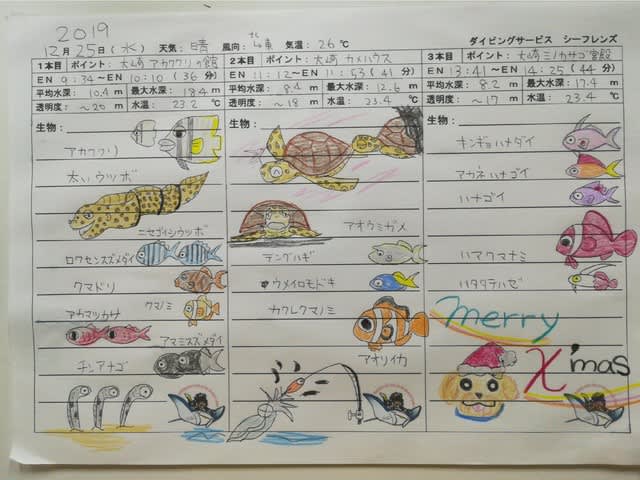 2019
12月25日(水) 天気:晴 風向:北東 気温:26℃ ダイビングサービス シーフレンズ
1本目 ポイント: 大崎アカククリの館
EN 9:34〜EN 10:10 (36分)
平均水深: 10.4 m 最大水深: 18.4 m
透明度: 〜20 m 水温: 23.2 ℃
生物:
アカククリ
太いウツボ
ニセゴイシウツボ
ロクセンスズメダイ
クマドリ
クマノミ
アカマツカサ
アマミスズメダイ
チンアナゴ
2本目 ポイント: 大崎 カメハウス
EN 11:12〜EN 11:53 (41分)
平均水深: 8.4 m 最大水深: 12.6 m
透明度: 〜18 m 水温: 23.4 ℃
生物:
アオウミガメ
テングハギ
ウメイロモドキ
カクレクマノミ
アオリイカ
3本目 ポイント: 大崎ミノカサゴ宮殿
EN 13:41〜EN 14:25 (44分)
平均水深: 8.2 m 最大水深: 17.4 m
透明度: 〜17 m 水温: 23.4 ℃
生物:
キンギョハナダイ
アカネハナゴイ
ハナゴイ
ハマクマナミ
ハタタテハゼ
merry
X'mas